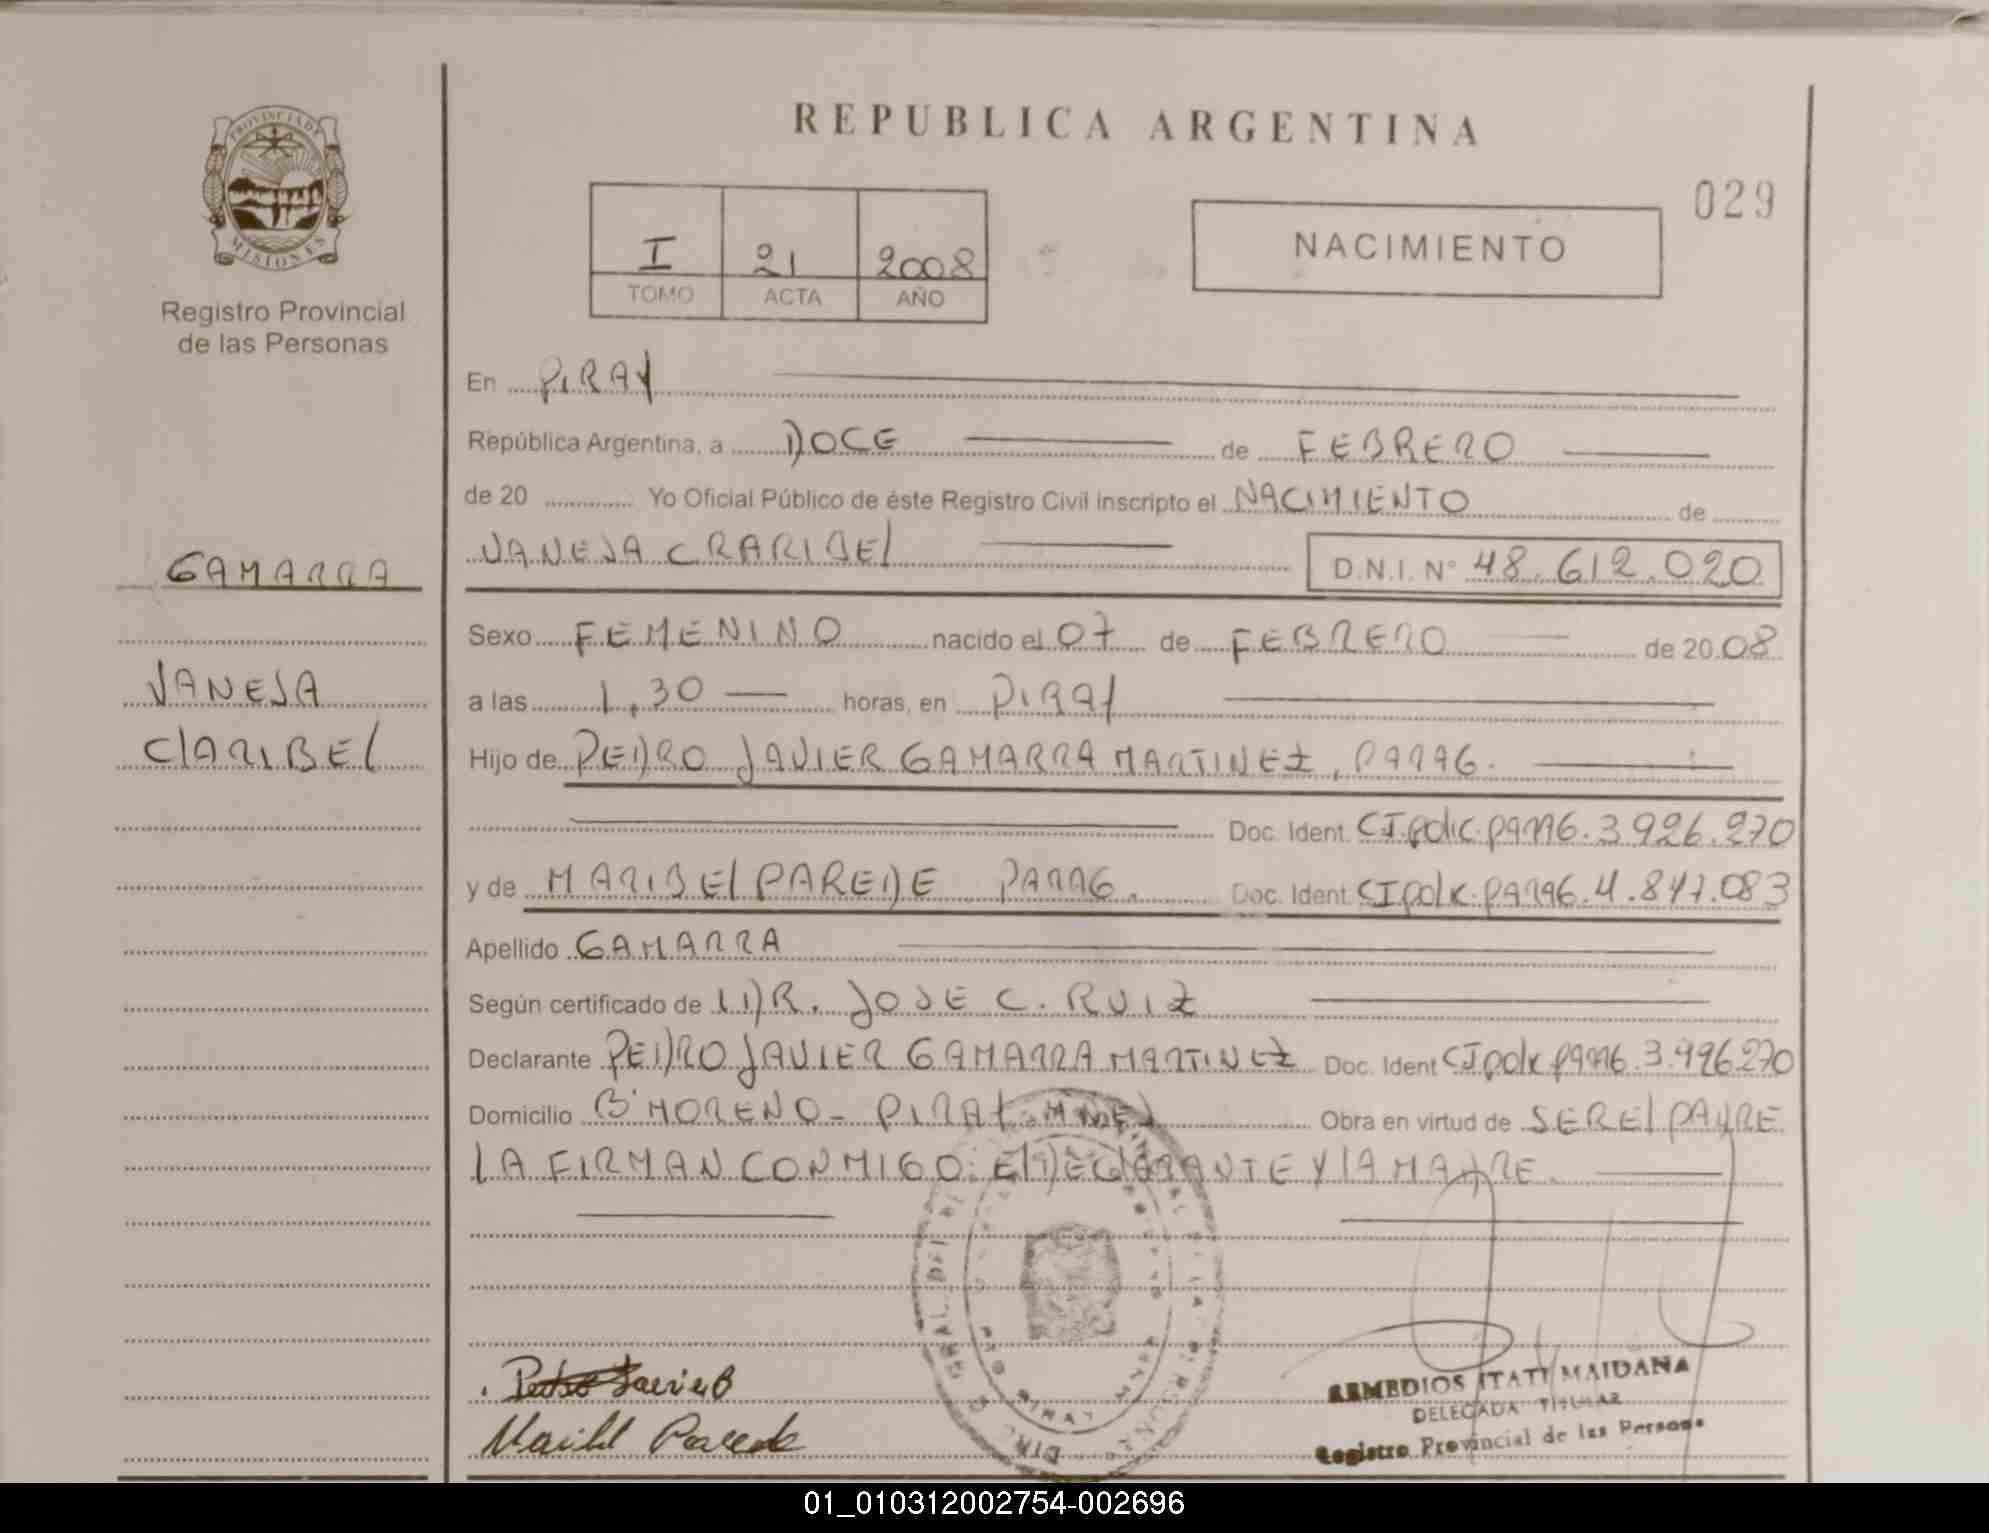 REPUBLICA ARGENTINA
029
PROVINCIA DE
MISIONES
Registro Provincial
de las Personas
I 21 2008
TOMO ACTA AÑO
NACIMIENTO
En PIRAY
República Argentina, a DOCE de FEBRERO
de 20 Yo Oficial Público de éste Registro Civil inscripto el NACIMIENTO de
VANESA CRARIBEL D.N.I. N° 48.612.020
GAMARRA
VANESA
CLARIBEL
Sexo FEMENINO nacido el 07 de FEBRERO de 2008
a las 1,30 horas, en PIRAY
Hijo de PEDRO JAVIER GAMARRA MARTINEZ, PARAG.
Doc. Ident. CI.polic.parag.3.926.270
y de MARIBEL PAREDE PARAG. Doc. Ident. CI.polic.parag.4.847.083
Apellido GAMARRA
Según certificado de DR. JOSE C. RUIZ
Declarante PEDRO JAVIER GAMARRA MARTINEZ Doc. Ident CI.polic.parag.3.996.270
Domicilio B° MORENO - PIRAY - MNES Obra en virtud de SER EL PADRE
LA FIRMAN CONMIGO: EL DECLARANTE Y LA MADRE.
Pedro Javier G
Maribel Parede
REMEDIOS ITATI MAIDANA
DELEGADA TITULAR
Registro Provincial de las Personas
01_010312002754-002696